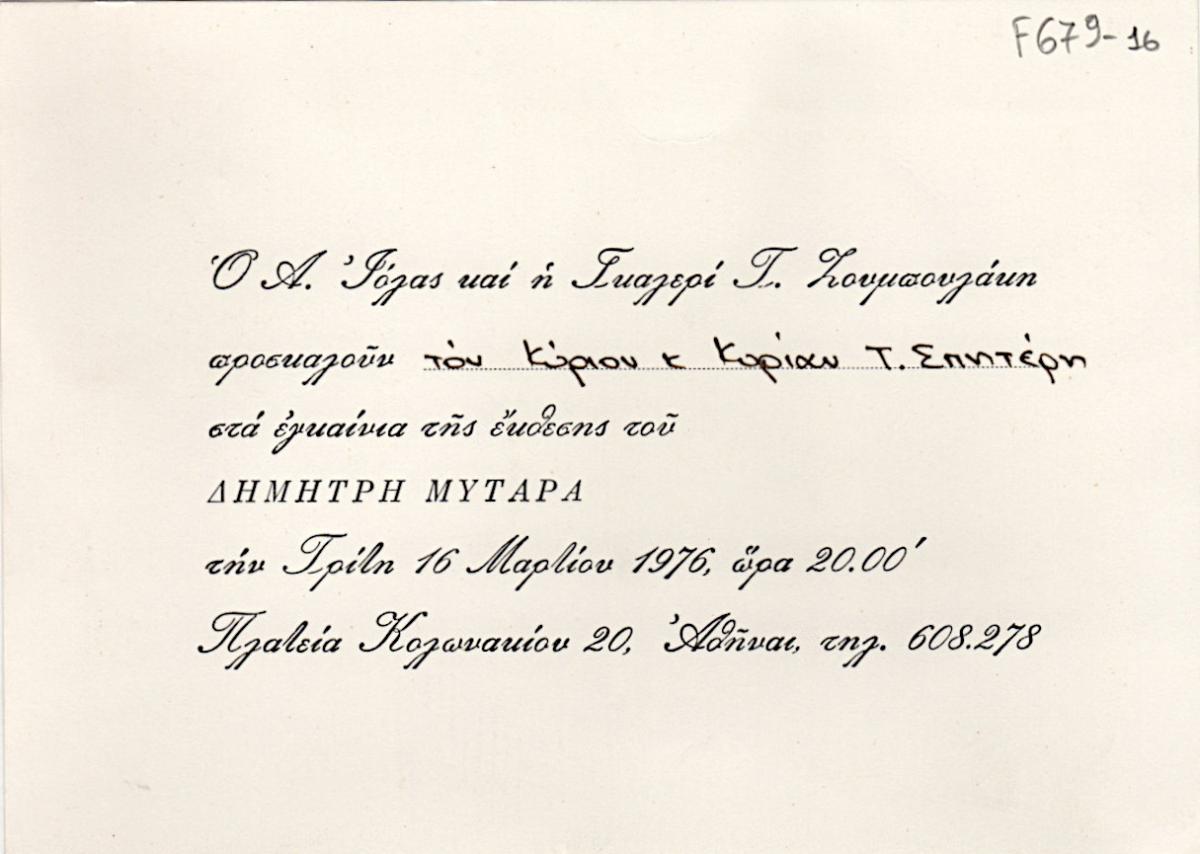 F679-16
Ὁ Ἀ. Ἰόλας καί ἡ Γκαλερί Τ. Ζουμπουλάκη
προσκαλοῦν τόν Κύριον κ Κυρίαν Τ. Σπητέρη
στά ἐγκαίνια τῆς ἔκθεσης τοῦ
ΔΗΜΗΤΡΗ ΜΥΤΑΡΑ
τήν Τρίτη 16 Μαρτίου 1976, ὥρα 20.00′
Πλατεία Κολωνακίου 20, Ἀθῆναι, τηλ. 608.278